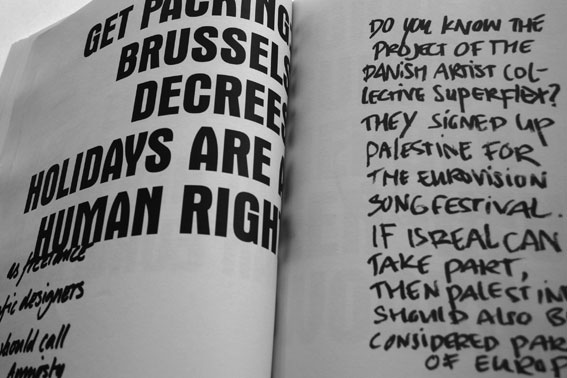 GET PACKING
BRUSSELS
DECREES
HOLIDAYS ARE A
HUMAN RIGH
as freelance
fic designers
should call
Amnesty
DO YOU KNOW THE
PROJECT OF THE
DANISH ARTIST COL-
LECTIVE SUPERFLEX?
THEY SIGNED UP
PALESTINE FOR
THE EUROVISION
SONGFESTIVAL.
IF ISREAL CAN
TAKE PART,
THEN PALESTIN
SHOULD ALSO B
CONSIDERED PAR
OF EUROP